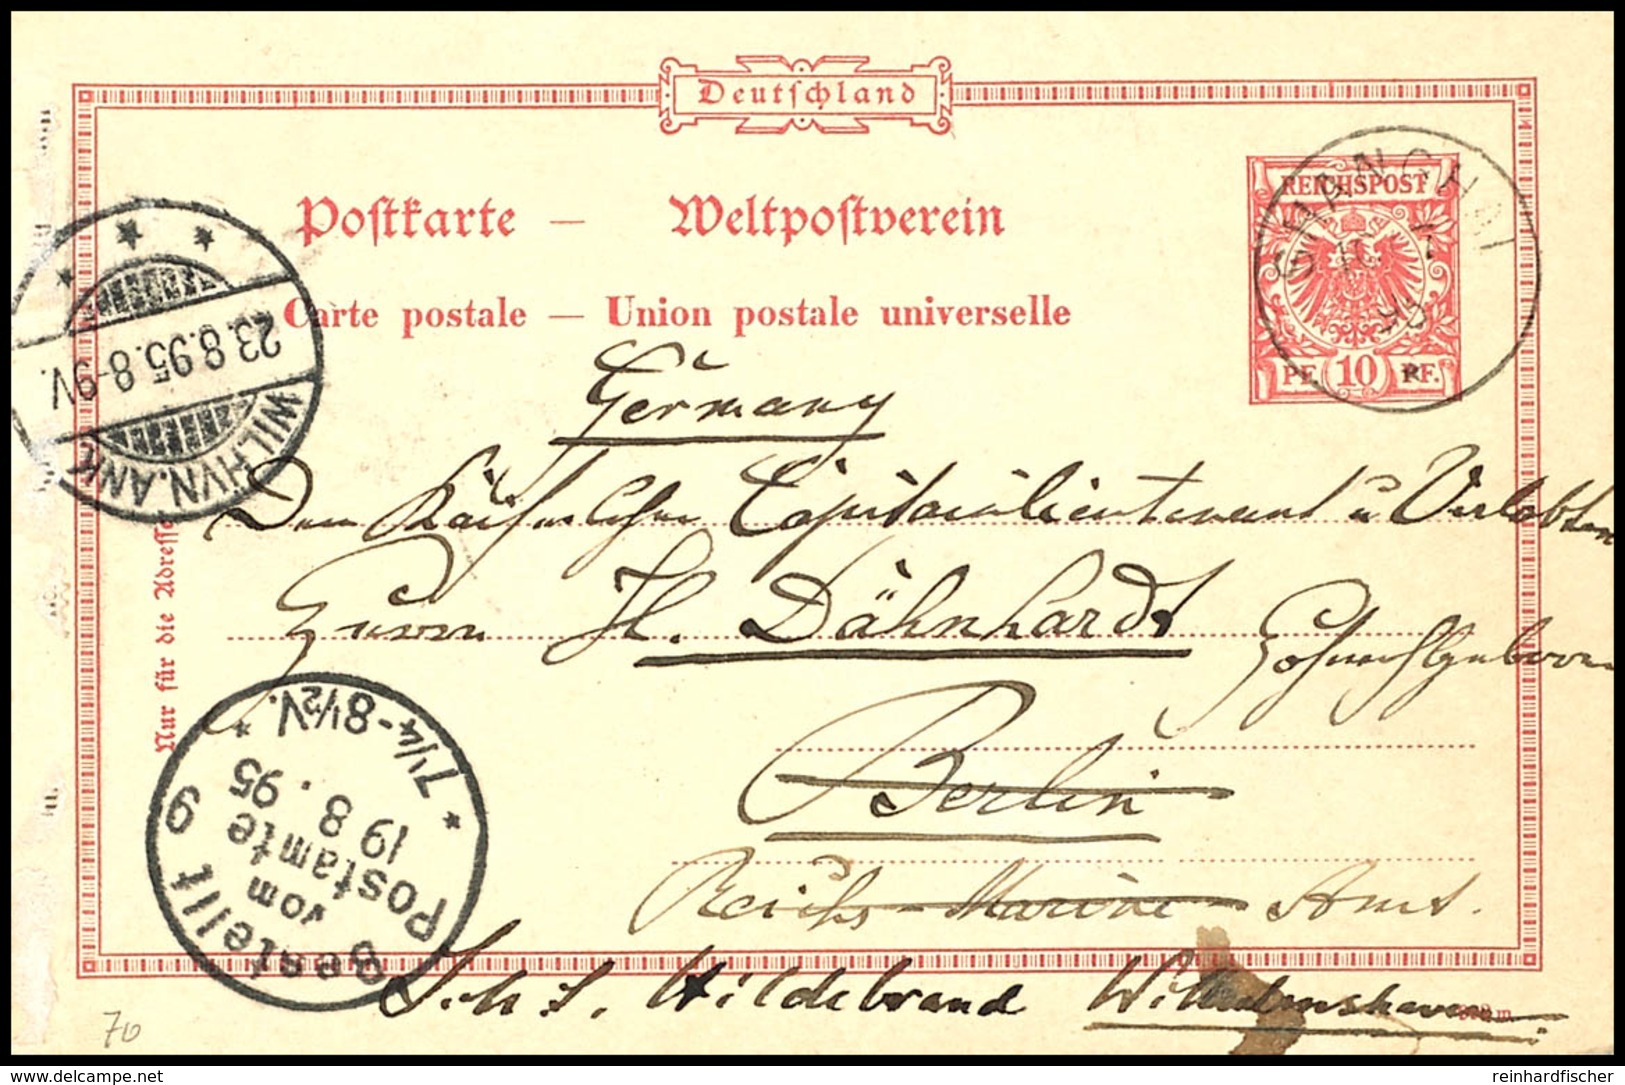 Deutschland
Postkarte — Weltpostverein
Carte postale — Union postale universelle
REICHSPOST
PF. 10 PF.
SHANGHAI
95
*
23.8.95.8-9V.
WILHVN.ANK.
Germany
Dem Kaiserlichen Capitainlieutenant u Verlobten
Herrn H. Dähnhardt
Berlin
Reichs-Marine-Amt.
S.M.S. Hildebrand Wilhelmshaven
Nur für die Adresse
Bestellt
vom
Postamte 9
19 8. 95
7¼-8½V.
70
delcampe.net
reinhardfischer